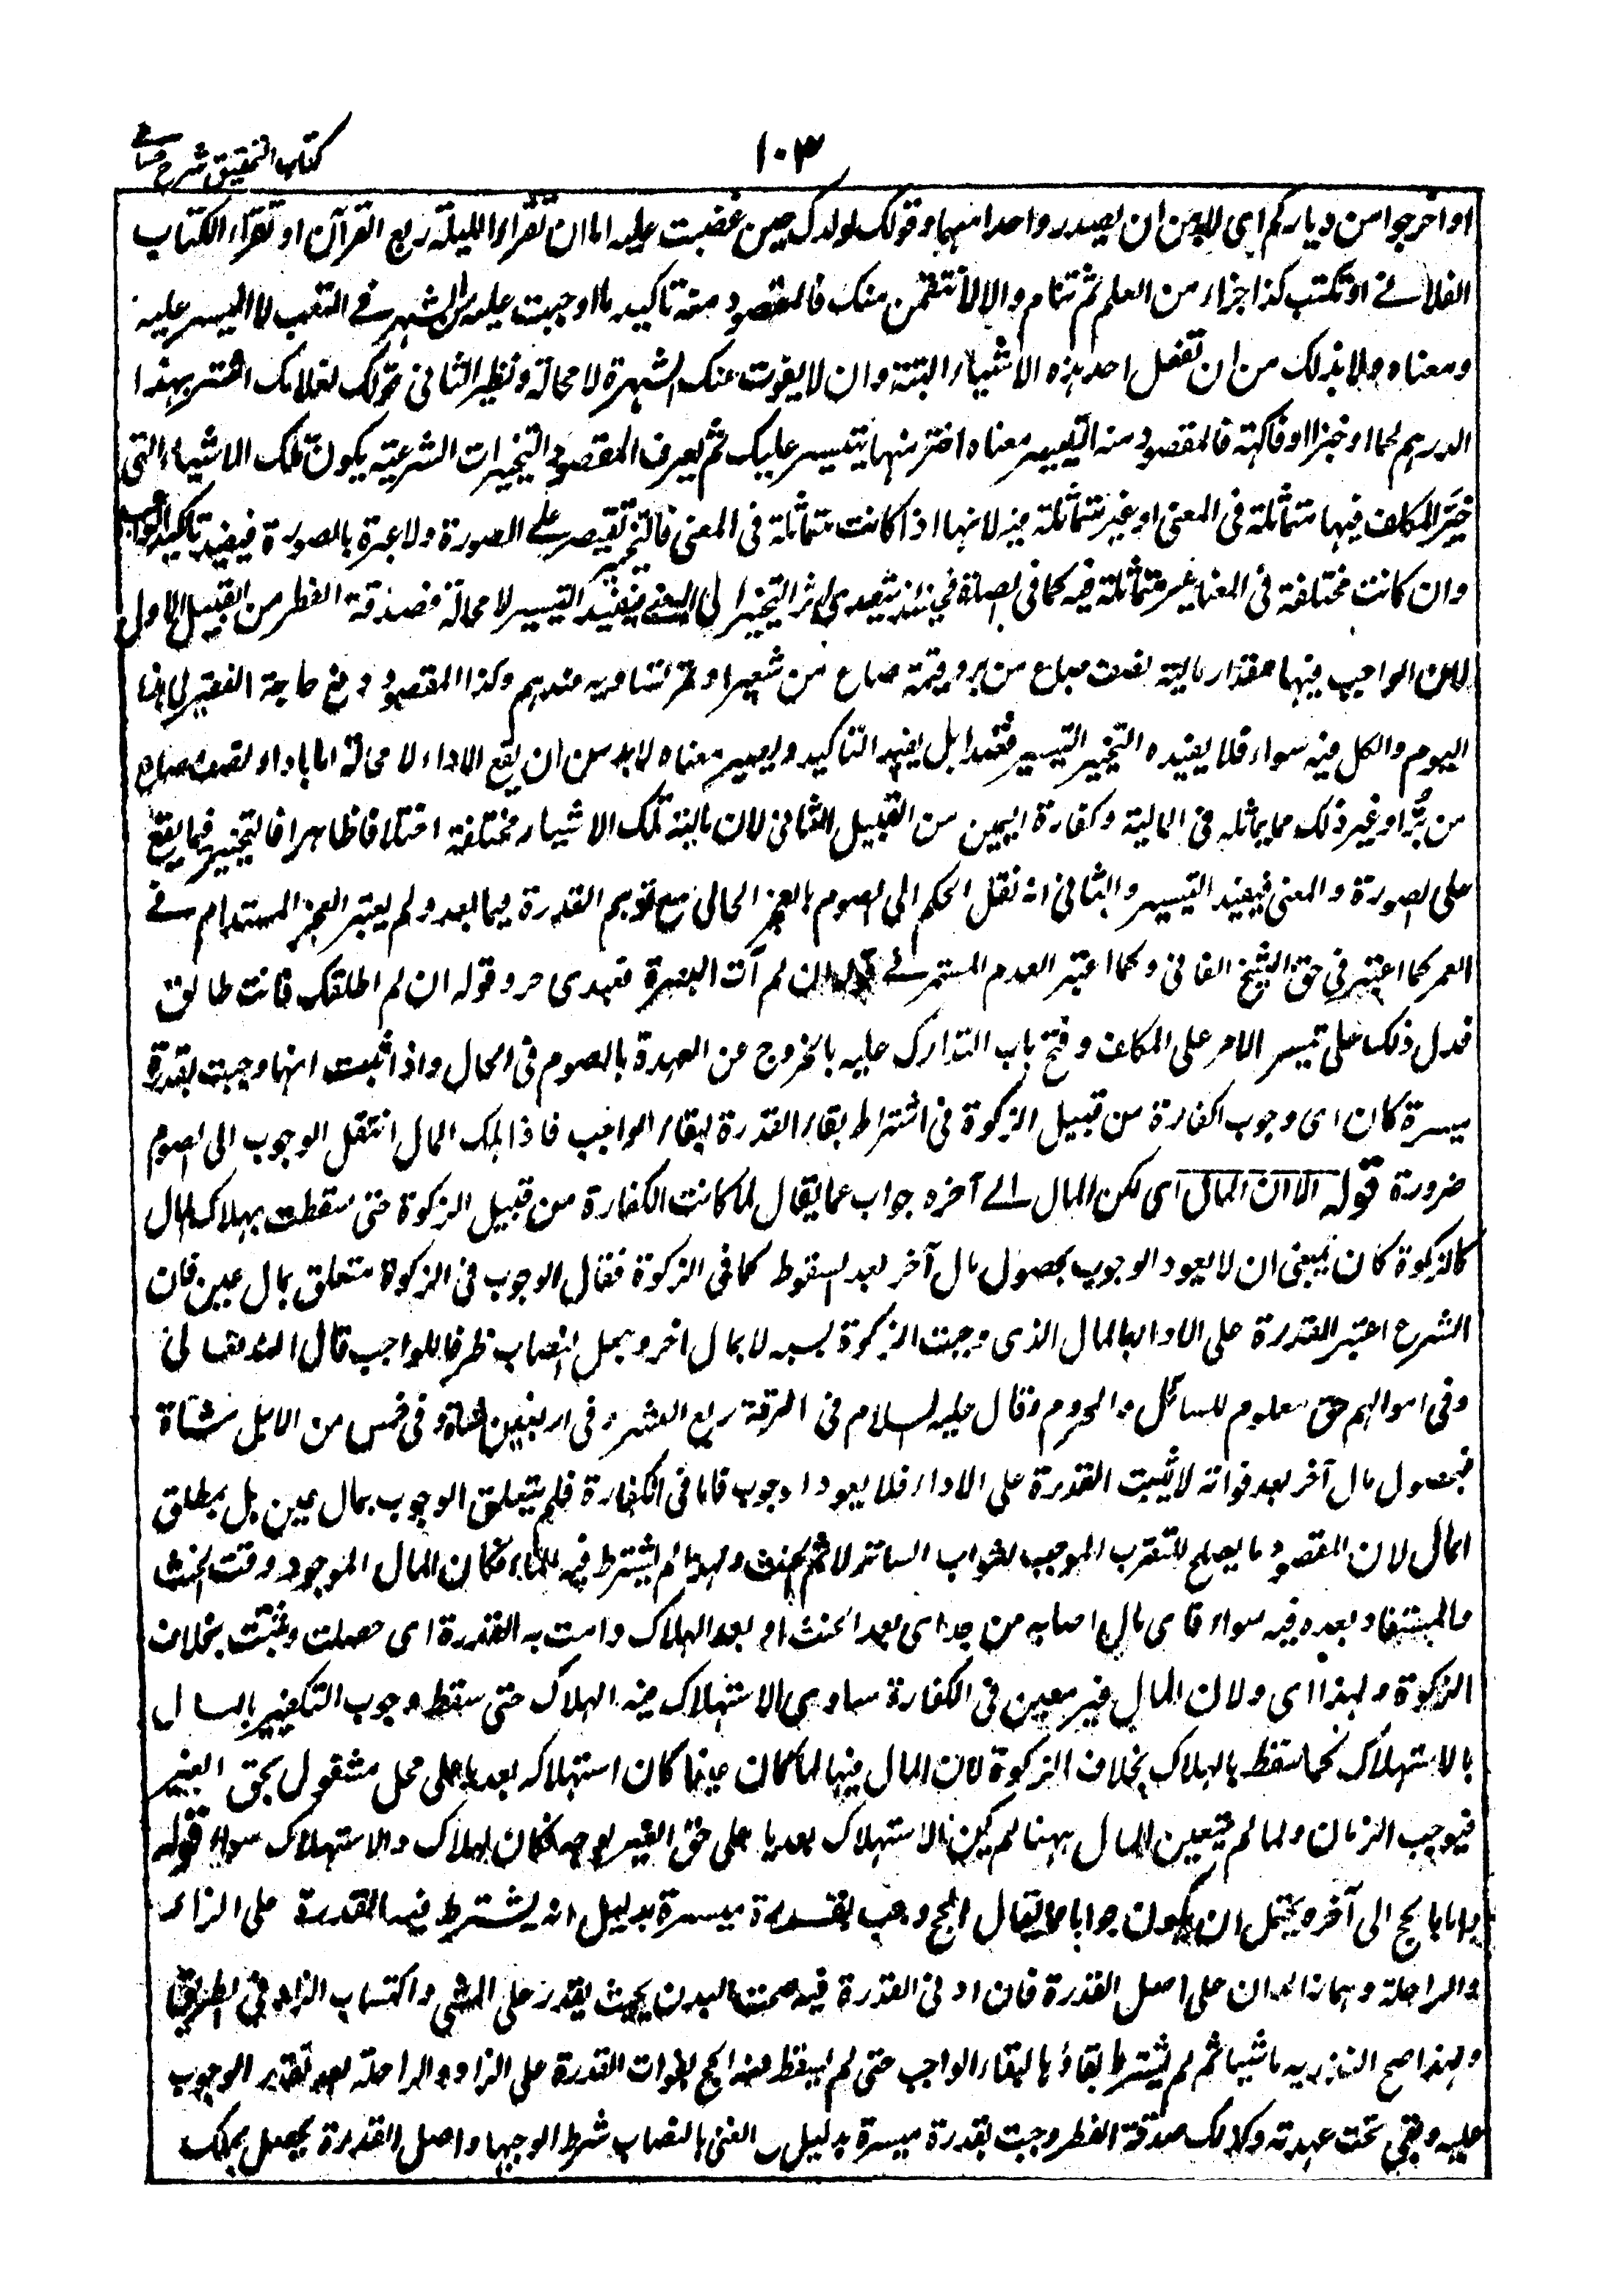 كتاب التحقيق شرح حسامي
١٠٣
او اخرجوا من دياركم اى لابد من ان يصدر واحد منهما وقولك لولدك حين غضبت عليه اما ان تقرأ الليلة ربع القرآن او تقرأ الكتاب
الفلانے او تكتب كذا جزاء من العلم ثم تنام والا لانتقمن منك فالمقصود منه تاكيد ما اوجبت عليه من السهر فے التعب لا التيسر عليه
ومعناه ولابد لك من ان تفعل احد هذه الاشياء البتة وان لا يفوت عنك السهرة لا محالة ونظير الثانى قولك لغلامك اشتر بهذا
الدرهم لحما او خبزا او فاكهة فالمقصود منه التيسير معناه اختر منها يتيسر عليك ثم يعرف المقصود التخييرات الشرعية بكون تلك الاشياء التى
خير المكلف فيها متماثلة فى المعنى او غير متماثلة فيه لانها اذا كانت متماثلة فى المعنى فالتخيير يقتصر على الصورة ولا عبرة بالصورة فيفيد تاكيد الواجب
وان كانت مختلفة فى المعنى غير متماثلة فيه كما فى الصلة فحينئذ يتعدى اثر التخيير الى المعنى فيفيد التيسير لا محالة فصدقة الفطر من القبيل الاول
لان الواجب فيها مقدار مالية نصف صاع من بر وقيمة صاع من شعير او تمر تساويه عندهم وكذا المقصود دفع حاجة الفقير فى هذا
اليوم والكل فيه سواء فلا يفيده التخيير التيسير قصدا بل يفيد التاكيد ويصير معناه لابد من ان يقع الاداء لا محالة اما باداء نصف صاع
من بر او غير ذلك مما يماثله فى المالية وكفارة اليمين من القبيل الثانى لان مالية تلك الاشياء مختلفة اختلافا ظاهرا فالتخيير فيها يقع
على الصورة والمعنى فيفيد التيسير والثانى انه نقل الحكم الى الصوم بالعجز الحالى مع توهم القدرة فيما بعد ولم يعتبر العجز المستدام فے
العمر كما اعتبر فى حق الشيخ الفانى وكما اعتبر العدم المستمر فے قوله ان لم آت البصرة فعبدى حر وقوله ان لم اطلقك فانت طالق
فدل ذلك على تيسير الامر على المكلف وفتح باب التدارك عليه بالخروج عن العهدة بالصوم فى الحال واذا ثبت انها وجبت بقدرة
ميسرة كان اى وجوب الكفارة من قبيل الزكوة فى اشتراط بقاء القدرة لبقاء الواجب فاذا هلك المال انتقل الوجوب الى الصوم
ضرورة قوله الا ان المال اى لكن المال الے آخره جواب عما يقال لما كانت الكفارة من قبيل الزكوة حتى سقطت بهلاك المال
كالزكوة كان ينبغى ان لا يعود الوجوب بحصول مال آخر بعد السقوط كما فى الزكوة فقال الوجوب فى الزكوة متعلق بمال عين فان
الشرع اعتبر القدرة على الاداء بالمال الذى وجبت الزكوة بسببه لا بمال اخر وجعل النصاب ظرفا للواجب قال الله تعالى
وفى اموالهم حق معلوم للسائل والمحروم وقال عليه السلام فى الرقة ربع العشر وفى اربعين شاة شاة وفى خمس من الابل شاة
فبحصول مال آخر بعد فواته لا تثبت القدرة على الاداء فلا يعود الوجوب فاما فى الكفارة فلم يتعلق الوجوب بمال عين بل بمطلق
المال لان المقصود ما يصلح للتقرب الموجب لثواب الساتر لاثم الحنث ولهذا لم يشترط فيه النماء فكان المال الموجود وقت الحنث
والمستفاد بعده فيه سواء فاى مال اصابه من بعد اى بعد الحنث او بعد الهلاك دامت به القدرة اى حصلت وثبتت بخلاف
الزكوة ولهذا اى ولان المال غير معين فى الكفارة ساوى الاستهلاك فيه الهلاك حتى سقط وجوب التكفير بالمال
بالاستهلاك كما سقط بالهلاك بخلاف الزكوة لان المال فيها لما كان عينا كان استهلاكه تعديا على محل مشغول بحق الغير
فيوجب الزمان ولما لم يتعين المال ههنا لم يكن الاستهلاك تعديا على حق الغير بوجه فكان الهلاك والاستهلاك سواء قوله
واما الحج الى آخره يحتمل ان يكون جوابا عما يقال الحج وجب بقدرة ميسرة بدليل انه يشترط فيه القدرة على الزاد
والراحلة وهما زائدان على اصل القدرة فان ادنى القدرة فيه صحت البدن بحيث يقدر على المشى واكتساب الزاد فى الطريق
ولهذا صح النذر به ماشيا ثم لم يشترط بقاؤها لبقاء الواجب حتى لم يسقط هذا الحج بفوات القدرة على الزاد والراحلة بعد تقرر الوجوب
عليه وبقى تحت عهدته وكذلك صدقة الفطر وجبت بقدرة ميسرة بدليل الغنى بالنصاب شرط لوجوبها واصل القدرة يحصل بملك